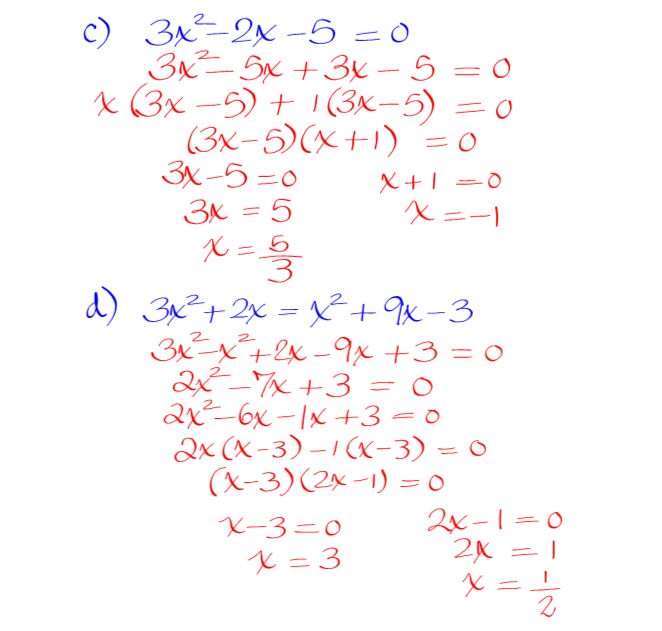 c) 3x²-2x-5=0
3x²-5x+3x-5=0
x(3x-5)+1(3x-5)=0
(3x-5)(x+1)=0
3x-5=0 x+1=0
3x=5 x=-1
x=5/3
d) 3x²+2x=x²+9x-3
3x²-x²+2x-9x+3=0
2x²-7x+3=0
2x²-6x-1x+3=0
2x(x-3)-1(x-3)=0
(x-3)(2x-1)=0
x-3=0 2x-1=0
x=3 2x=1
x=1/2